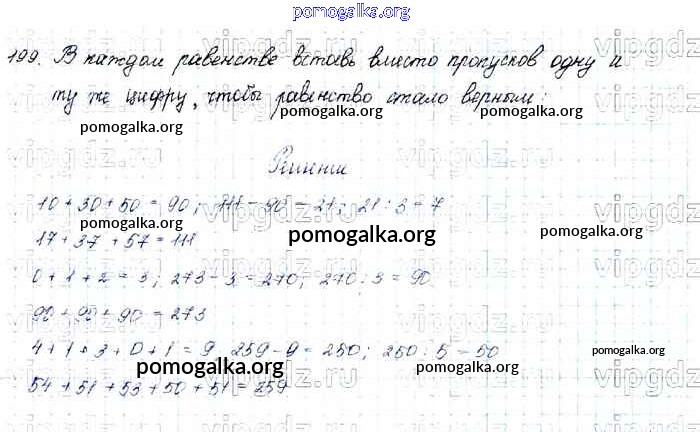 pomogalka.org
199. В каждом равенстве вставь вместо пропусков одну и
ту же цифру, чтобы равенство стало верным:
pomogalka.org pomogalka.org pomogalka.org
Решение
10 + 30 + 50 = 90; 111 - 90 = 21; 21 : 3 = 7
17 + 37 + 57 = 111
pomogalka.org pomogalka.org
0 + 1 + 2 = 3; 273 - 3 = 270; 270 : 3 = 90
90 + 90 + 273
4 + 1 + 3 + 0 + 1 = 9 259 - 9 = 250; 250 : 5 = 50
pomogalka.org pomogalka.org pomogalka.org
54 + 51 + 53 + 50 + 51 = 259
pomogalka.org